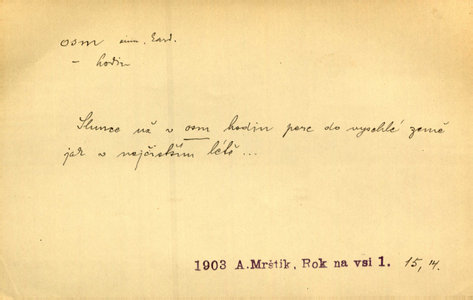 osm num. Card.
– hodin
Slunce už v osm hodin pere do vyschlé země
jak v nejčistším létě...
1903 A.Mrštík, Rok na vsi 1. 15, 14.